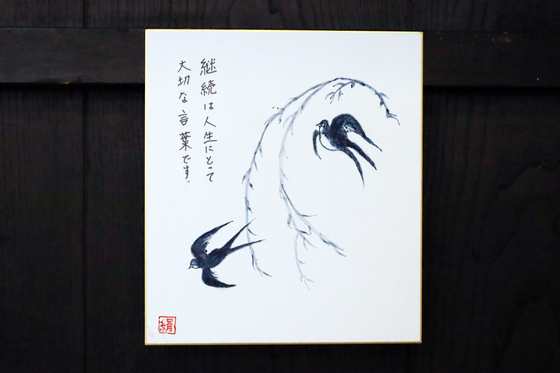 継続は人生にとって
大切な言葉です.
絹